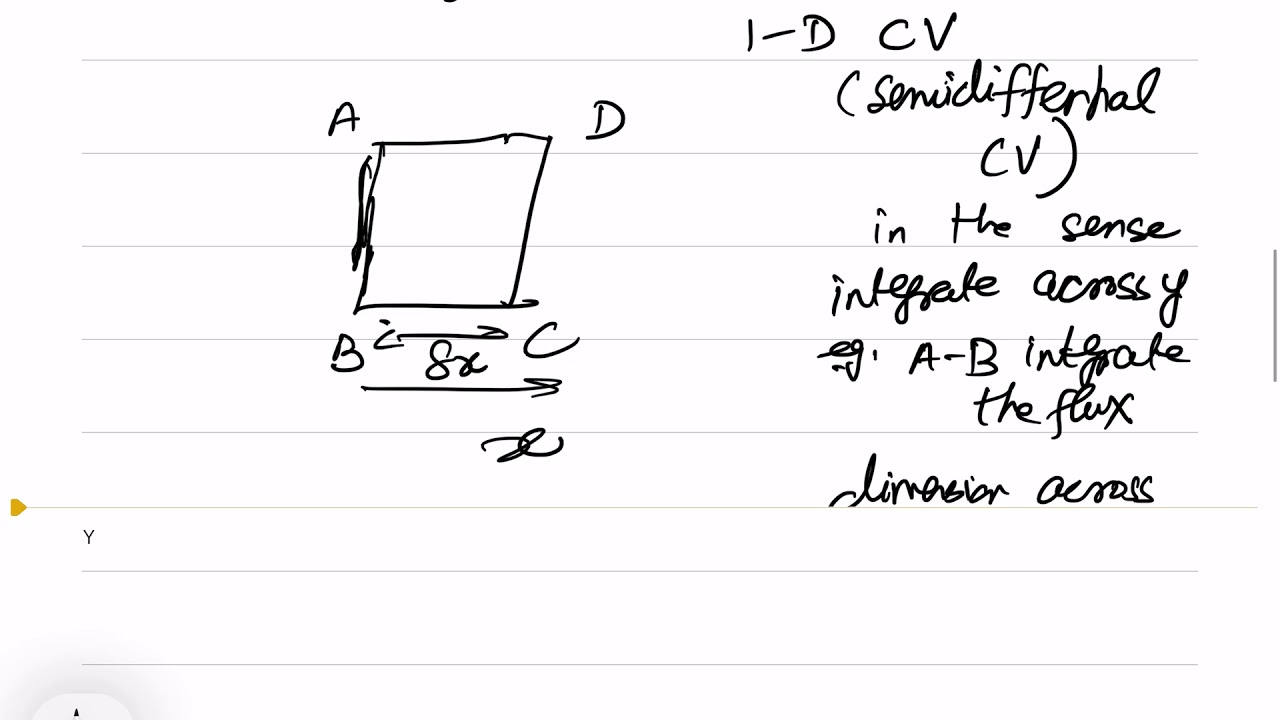 1-D CV
(semidifferntial
CV)
in the sense
integrate across y
eg. A-B integrate
the flux
dimension across
A
D
B
C
δx
x
Y